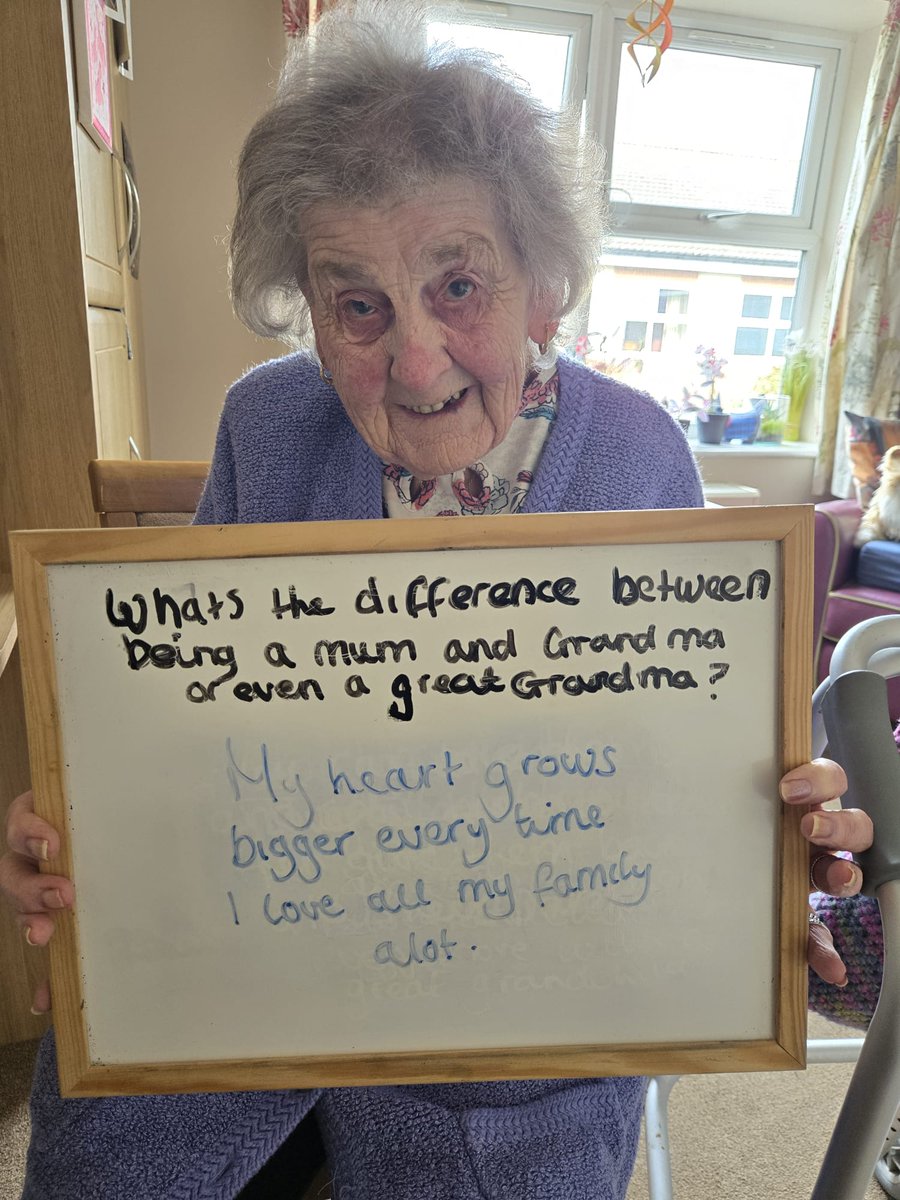 Whats the difference between
being a mum and Grandma
or even a great Grandma?
My heart grows
bigger every time
I love all my family
alot.
great grandchildren